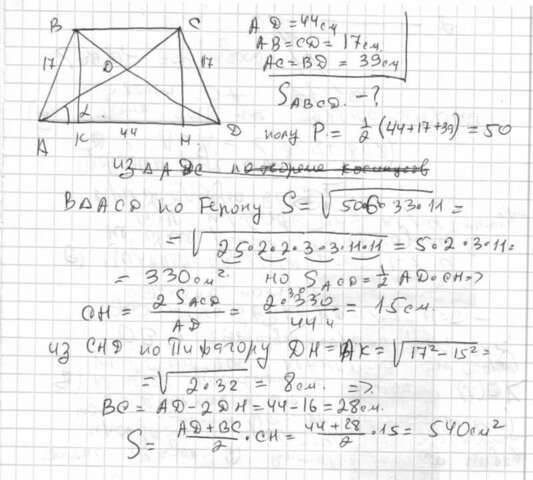 B C
17 O 17
α
A K 44 H D
AD = 44 см
AB = CD = 17 см.
AC = BD = 39 см
S ABCD. - ?
полу P = 1/2 (44+17+39) = 50
из ΔADC по теореме косинусов
В ΔACD по Герону S = √50·6·33·11 =
= √25·2·2·3·3·11·11 = 5·2·3·11=
= 330 см². но S ACD = 1/2 AD·CH =>
CH = 2 S ACD / AD = 2·330 / 44 = 15 см.
из CHD по Пифагору DH = AK = √17²-15² =
= √2·32 = 8 см. =>
BC = AD - 2DH = 44 - 16 = 28 см.
S = AD+BC / 2 · CH = 44+28 / 2 · 15 = 540 см²